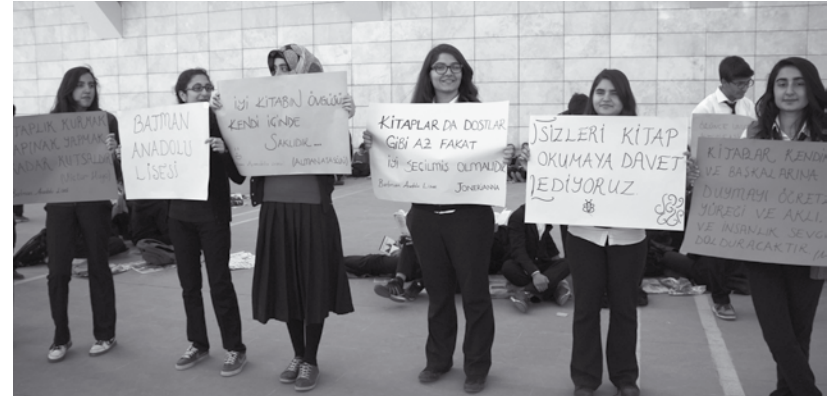 TAPLIK KURMAK
APINAK YAPMAK
KADAR KUTSALDIR
Batman Anadolu Lisesi
BATMAN
ANADOLU
LİSESİ
İYİ KİTABIN ÖVGÜSÜ
KENDİ İÇİNDE
SAKLIDIR...
(ALMAN ATASÖZÜ)
KİTAPLAR DA DOSTLAR
GİBİ AZ FAKAT
İYİ SEÇİLMİŞ OLMALIDIR
Batman Anadolu Lisesi
JONEKANNA
SİZLERİ KİTAP
OKUMAYA DAVET
EDİYORUZ
KİTAPLAR KENDİN
VE BAŞKALARINA
DUYMAYI ÖĞRETE
YÜREĞİ VE AKLI
VE İNSANLIK SEVG
DOLDURACAKTIR